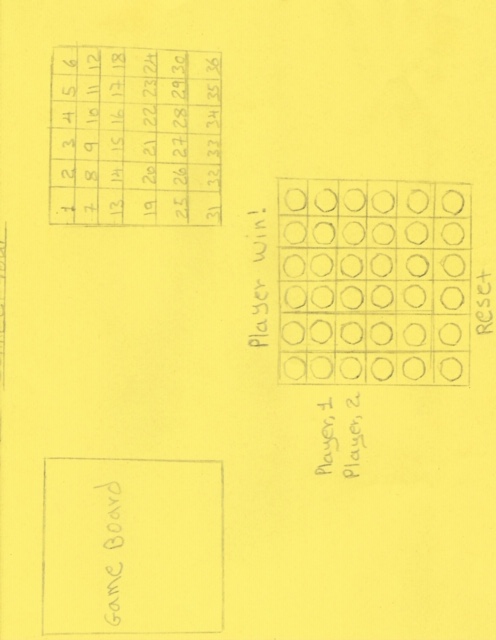 Game Board
1 2 3 4 5 6
7 8 9 10 11 12
13 14 15 16 17 18
19 20 21 22 23 24
25 26 27 28 29 30
31 32 33 34 35 36
Player Win!
Player, 1
Player, 2
Reset